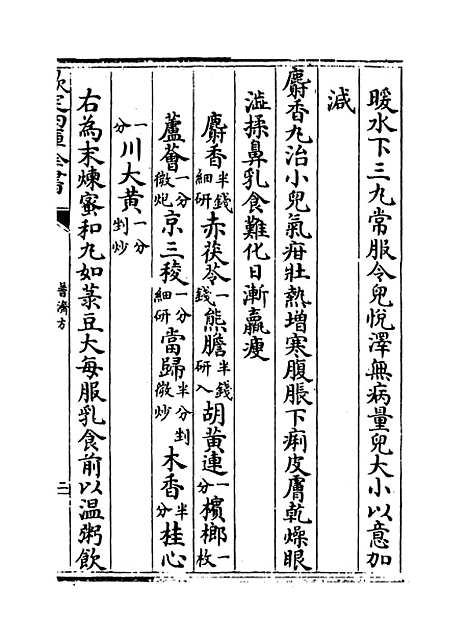 暖水下三丸常服令兒悅澤無病量兒大小以意加
減
麝香丸治小兒氣疳壯熱増寒腹脹下痢皮膚乾燥眼
澁揉鼻乳食難化日漸羸瘦
麝香半錢細研赤茯苓一錢熊膽半錢研入胡黃連一分檳榔一枚
蘆薈一分微炮京三稜一分細研當歸半分剉微炒木香半分桂心
一分川大黃一分剉炒
右為末煉蜜和丸如菉豆大每服乳食前以温粥飲
欽定四庫全書
普濟方
二